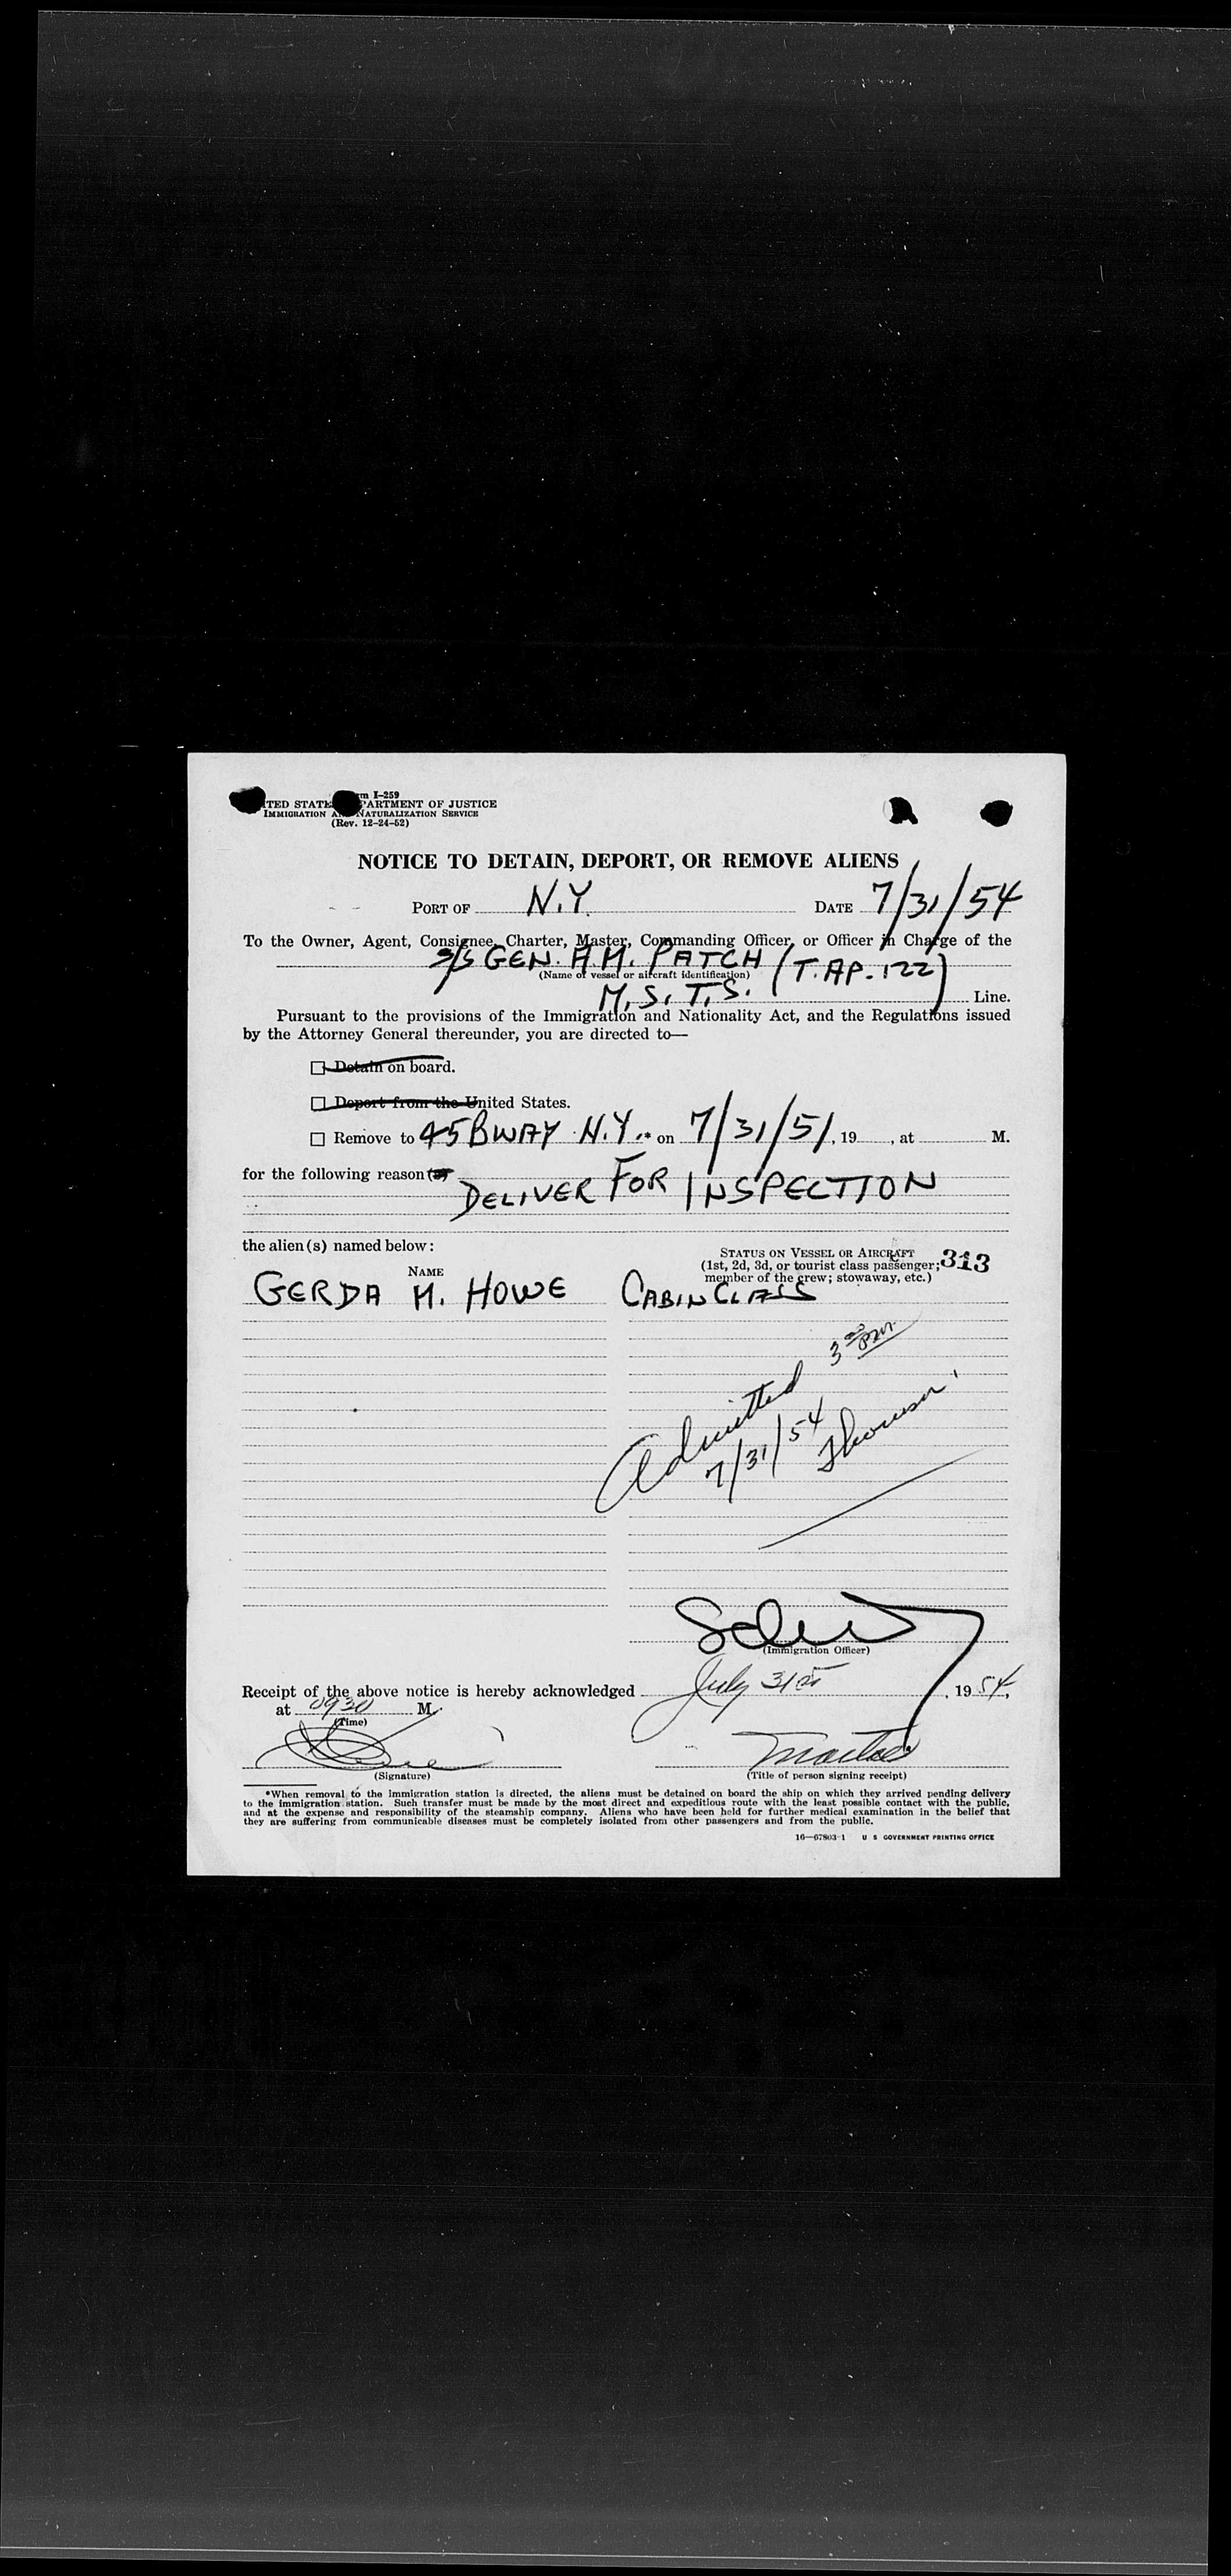 m I-259
TED STATE PARTMENT OF JUSTICE
IMMIGRATION A NATURALIZATION SERVICE
(Rev. 12-24-52)
NOTICE TO DETAIN, DEPORT, OR REMOVE ALIENS
PORT OF N.Y. DATE 7/31/54
To the Owner, Agent, Consignee, Charter, Master, Commanding Officer, or Officer in Charge of the
S/S GEN. A.M. PATCH (T.AP-122)
(Name of vessel or aircraft identification)
M.S.T.S. Line.
Pursuant to the provisions of the Immigration and Nationality Act, and the Regulations issued
by the Attorney General thereunder, you are directed to—
☐ Detain on board.
☐ Deport from the United States.
☐ Remove to 45 BWAY N.Y.* on 7/31/51, 19 , at M.
for the following reason(s)
DELIVER FOR INSPECTION
the alien(s) named below:
STATUS ON VESSEL OR AIRCRAFT
(1st, 2d, 3d, or tourist class passenger; 313
member of the crew; stowaway, etc.)
NAME
GERDA M. HOWE CABIN CLASS
Admitted 3 00 pm
7/31/54
(Immigration Officer)
Receipt of the above notice is hereby acknowledged July 31st, 1954,
at 0930 M.
(Time)
(Signature) (Title of person signing receipt)
*When removal to the immigration station is directed, the aliens must be detained on board the ship on which they arrived pending delivery
to the immigration station. Such transfer must be made by the most direct and expeditious route with the least possible contact with the public,
and at the expense and responsibility of the steamship company. Aliens who have been held for further medical examination in the belief that
they are suffering from communicable diseases must be completely isolated from other passengers and from the public.
16—67803-1 U S GOVERNMENT PRINTING OFFICE